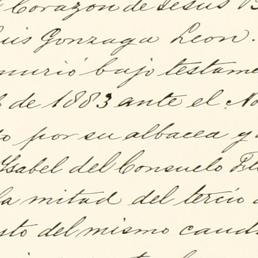 Corazon de Jesus
Luis Gonzaga Leon.
murió bajo testame
de 1883 ante el No
por su albacea y
Ysabel del Consuelo
la mitad del tercio
sto del mismo caud